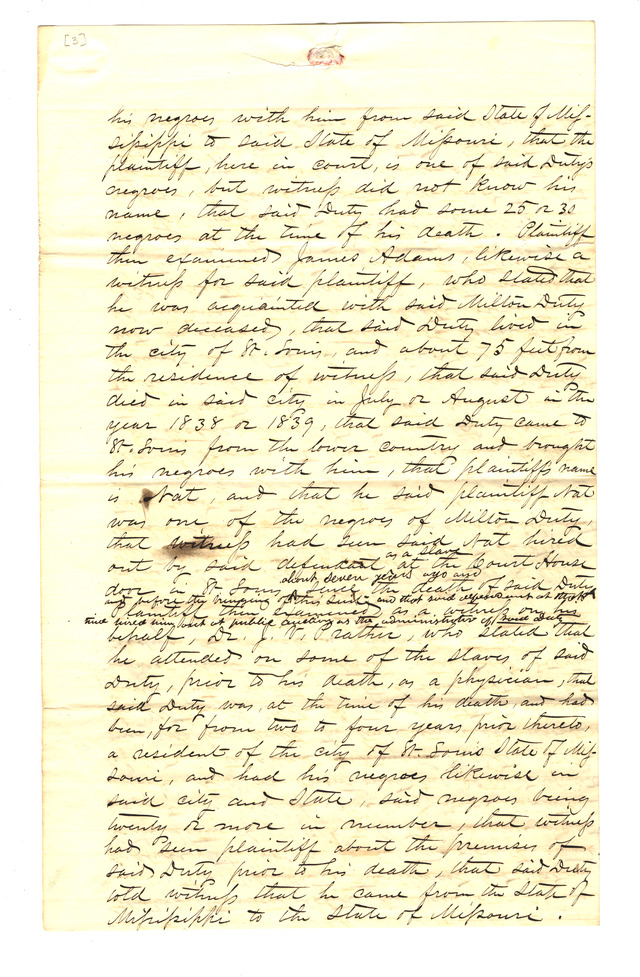 [3]
his negroes with him from said State of Mis-
sissippi to said State of Missouri, that the
plaintiff, here in court, is one of said Duty's
negroes, but witness did not know his
name, that said Duty had some 25 or 30
negroes at the time of his death. Plaintiff
then examined James Adams, likewise a
witness for said plaintiff, who stated that
he was acquainted with said Milton Duty
now deceased, that said Duty lived in
the city of St. Louis, and about 75 feet from
the residence of witness, that said Duty
died in said city in July or August in the
year 1838 or 1839, that said Duty came to
St. Louis from the lower country and brought
his negroes with him, that plaintiffs name
is Nat, and that he said plaintiff Nat
was one of the negroes of Milton Duty,
that witness had seen said Nat hired
as a slave
out by said defendant at the Court House
about seven years ago and
door in St. Louis since the death of said Duty
and before the bringing of this suit and that said defendant at that
Plaintiff then examined as a witness on his
time hired him out at public auction as the administrator of said Duty
behalf, Dr. J. V. Prather, who stated that
he attended on some of the slaves of said
Duty, prior to his death, as a physician, that
said Duty was, at the time of his death, and had
been, for from two to four years, prior thereto,
a resident of the city of St. Louis State of Mis-
souri, and had his negroes likewise in
said city and State, said negroes being
twenty or more in number, that witness
had seen plaintiff about the premises of
said Duty prior to his death, that said Duty
told witness that he came from the State of
Missisippi to the State of Missouri.